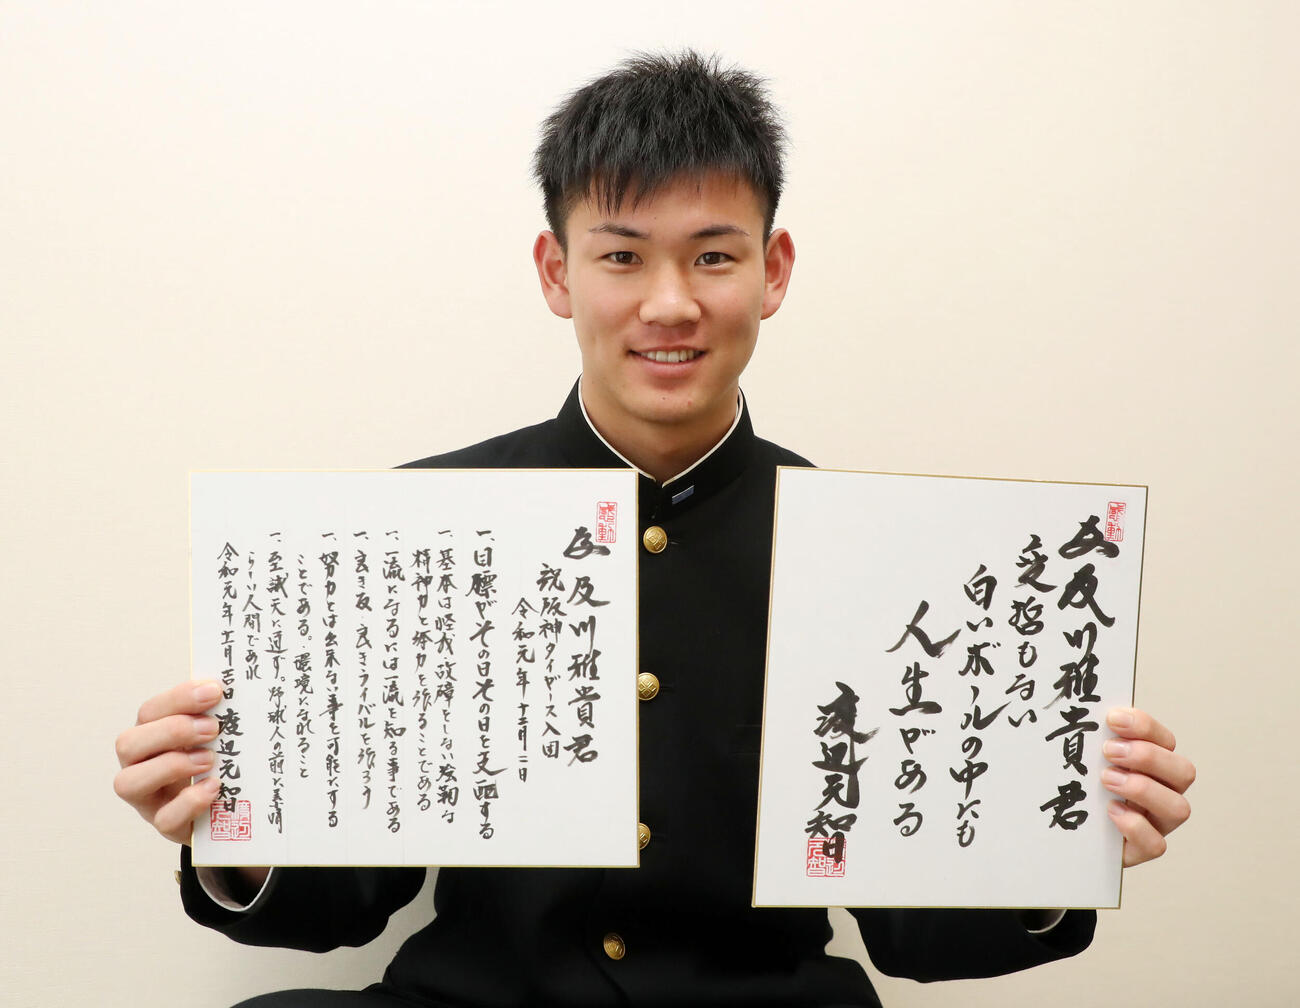 感動
友 及川雅貴君
祝阪神タイガース入団
令和元年 十二月二日
一、目標がその日その日を支配する
一、基本は怪我、故障をしない強靭な
精神力と体力を張ることである
一、一流になるには一流を知る事である
一、良き友・良きライバルを張ろう
一、努力とは出来ない事を可能にする
ことである。環境になれること
一、至誠天に通ず。野球人の前に素晴
らしい人間であれ
令和元年十二月二日 渡辺元智
感動
友 及川雅貴君
変哲もない
白いボールの中にも
人生がある
渡辺元智